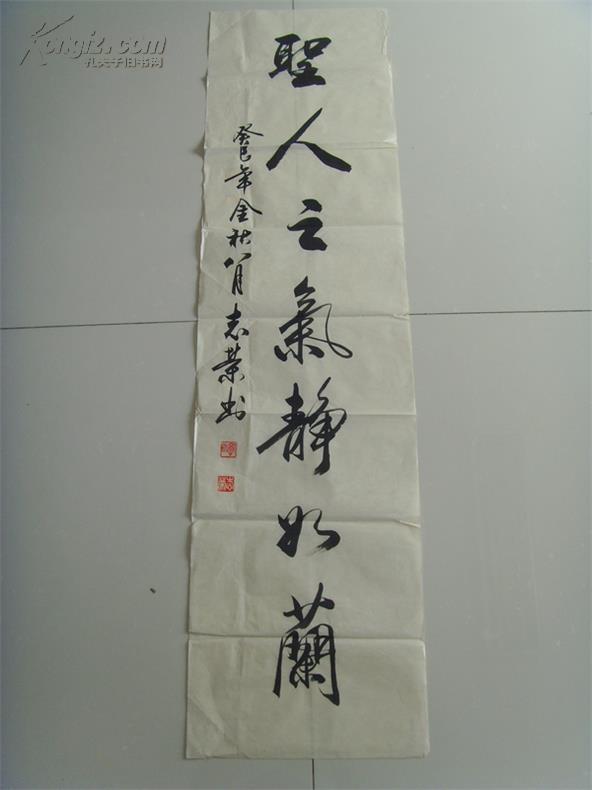 聖人之氣静如蘭
癸巳年金秋八月志荣书
Kongfz.com
孔夫子旧书网